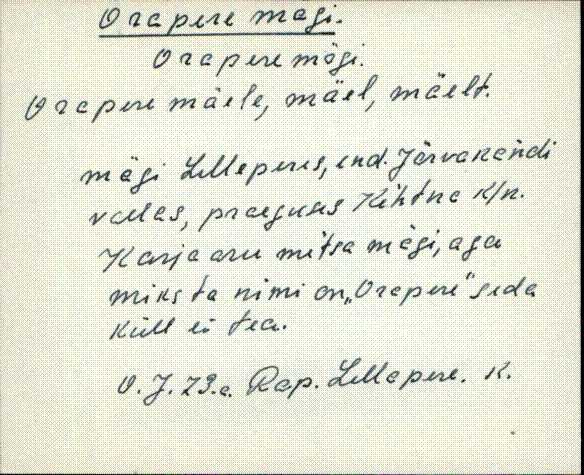 Orapere mägi.
Orapere mägi.
Orapere mäele, mäel, mäelt.
mägi Lelleperes, end. Järvakandi
vallas, praeguses Kehtna k/n.
Karjaaru metsa mägi, aga
miks ta nimi on „Orapere" seda
küll ei tea.
O. J. 29.a. Rap. Lellapere. k.